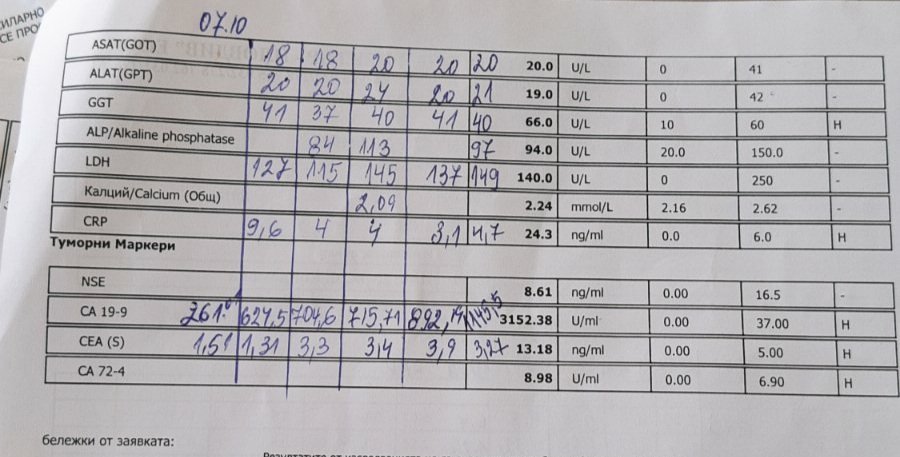 СИЛАРНО
СЕ ПРО
07.10
ASAT(GOT) 18 18 20 20 20 20.0 U/L 0 41 -
ALAT(GPT) 20 20 24 20 21 19.0 U/L 0 42 -
GGT 41 37 40 41 40 66.0 U/L 10 60 H
ALP/Alkaline phosphatase 84 113 97 94.0 U/L 20.0 150.0 -
LDH 127 115 145 137 149 140.0 U/L 0 250 -
Калций/Calcium (Общ) 2,09 2.24 mmol/L 2.16 2.62 -
CRP 9,6 4 4 3,1 4,7 24.3 ng/ml 0.0 6.0 H
Туморни Маркери
NSE 8.61 ng/ml 0.00 16.5 -
CA 19-9 261. 624,5 704,6 715,71 892,19 1145,5 3152.38 U/ml 0.00 37.00 H
CEA (S) 1,51 1,31 3,3 3,4 3,9 3,27 13.18 ng/ml 0.00 5.00 H
CA 72-4 8.98 U/ml 0.00 6.90 H
бележки от заявката: